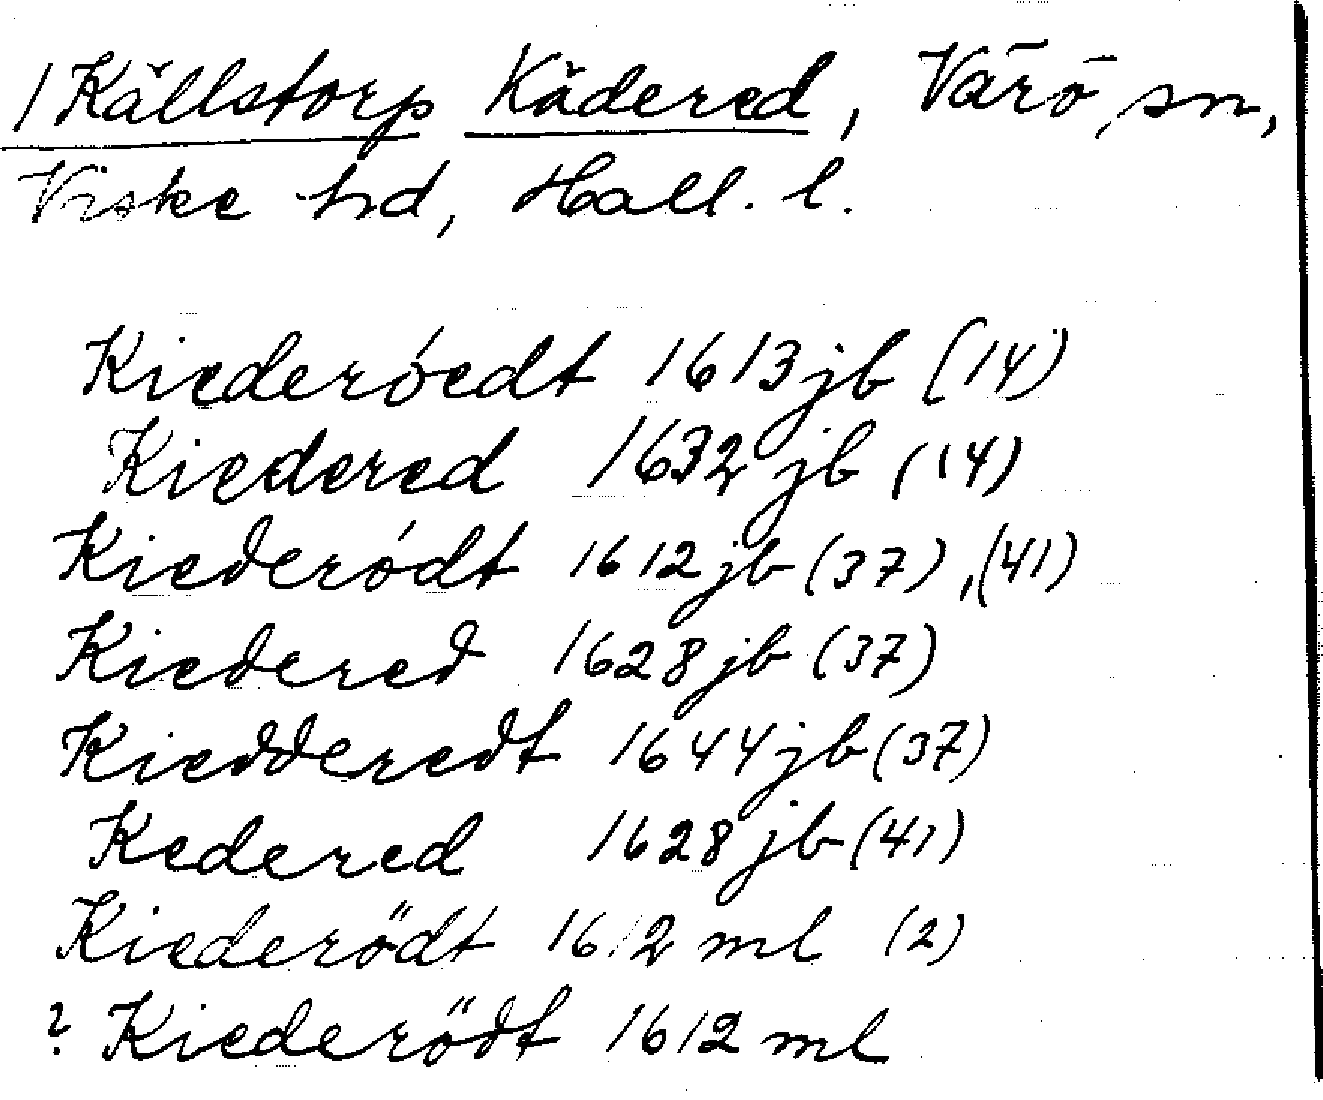 /Källstorp Kädered, Värö sn,
Viske hd, Hall. l.
Kiederóedt 1613 jb (14)
Kiedered 1632 jb (14)
Kiederódt 1612 jb (37), (41)
Kiedered 1628 jb (37)
Kiedderedt 1644 jb (37)
Kedered 1628 jb (41)
Kiederödt 1612 ml (2)
? Kiederödt 1612 ml